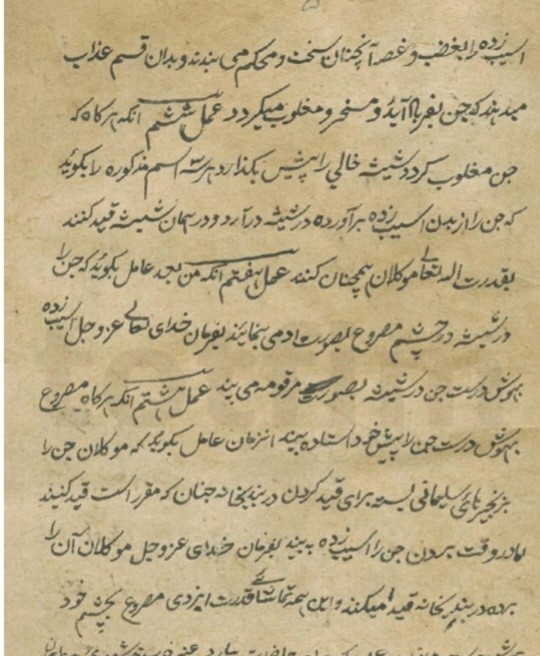 اسیب زده را بغضب و غصه آنچنان سخت و محکم می بندند و بدان قسم عذاب
میدهند که جن بفریاد آید و مسخر و مغلوب میکردد عمل ششم انکه هرکاه که
جن مغلوب کردد شیشه خالی را پیش بکذارد هر سه اسم مذکوره را بکوید
که جن را از بدن اسیب زده برآورده در شیشه درآرد و در همان شیشه قید کنند
بقدرت الله تعالی موکلان همچنان کنند عمل هفتم انکه من بعد عامل بکوید که جن را
در شیشه در چشم مصروع بصورت ادمی بنمایند بفرمان خدای تعالی عز و جل اسیب زده
بهوش درست جن در شیشه بصورت مرقومه می بیند عمل هشتم انکه هرکاه مصروع
بهوش درست جن را پیش خود استاده بیند انزمان عامل بکوید که موکلان جن را
بزنجیرهای سلیمانی بسته برای قید کردن در بندیخانه جنان که مقرر است قید کنند
اما در وقت بردن جن را اسیب زده به بیند بفرمان خدای عز و جل موکلان آن را
برده در بندیخانه قید میکنند و این همه تماشای قدرت ایزدی مصروع بچشم خود